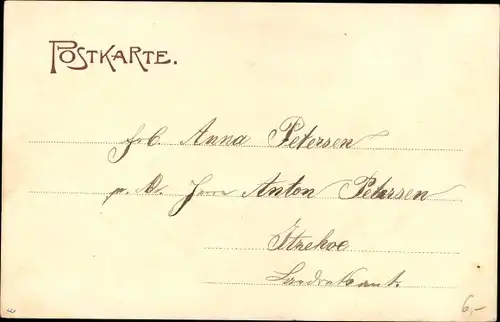 POSTKARTE.
Frl. Anna Petersen
p. Ad. Herrn Anton Petersen
Itzehoe
Landratsamt.
6,-